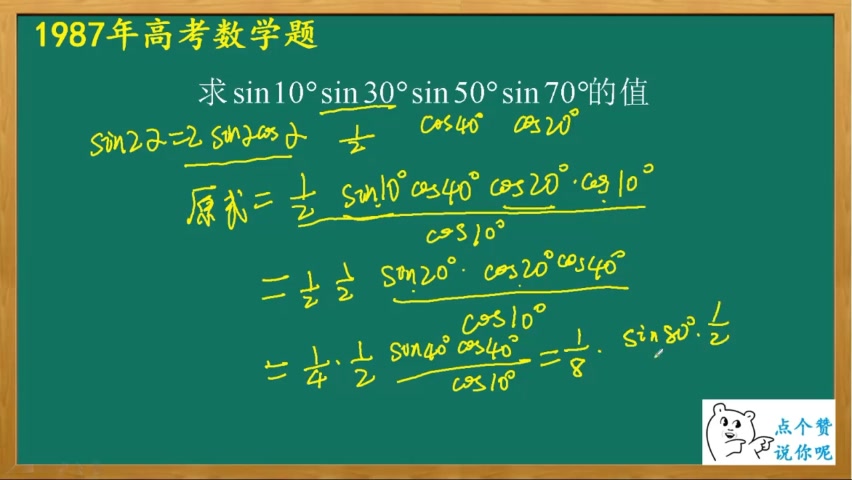 1987年高考数学题
求sin10°sin30°sin50°sin70°的值
sin2α=2sinαcosα 1/2 cos40° cos20°
原式= 1/2 sin10°cos40°cos20°·cos10° / cos10°
= 1/2 1/2 sin20°·cos20°cos40° / cos10°
= 1/4·1/2 sin40°cos40° / cos10° = 1/8· sin80°·1/2
点个赞
说你呢